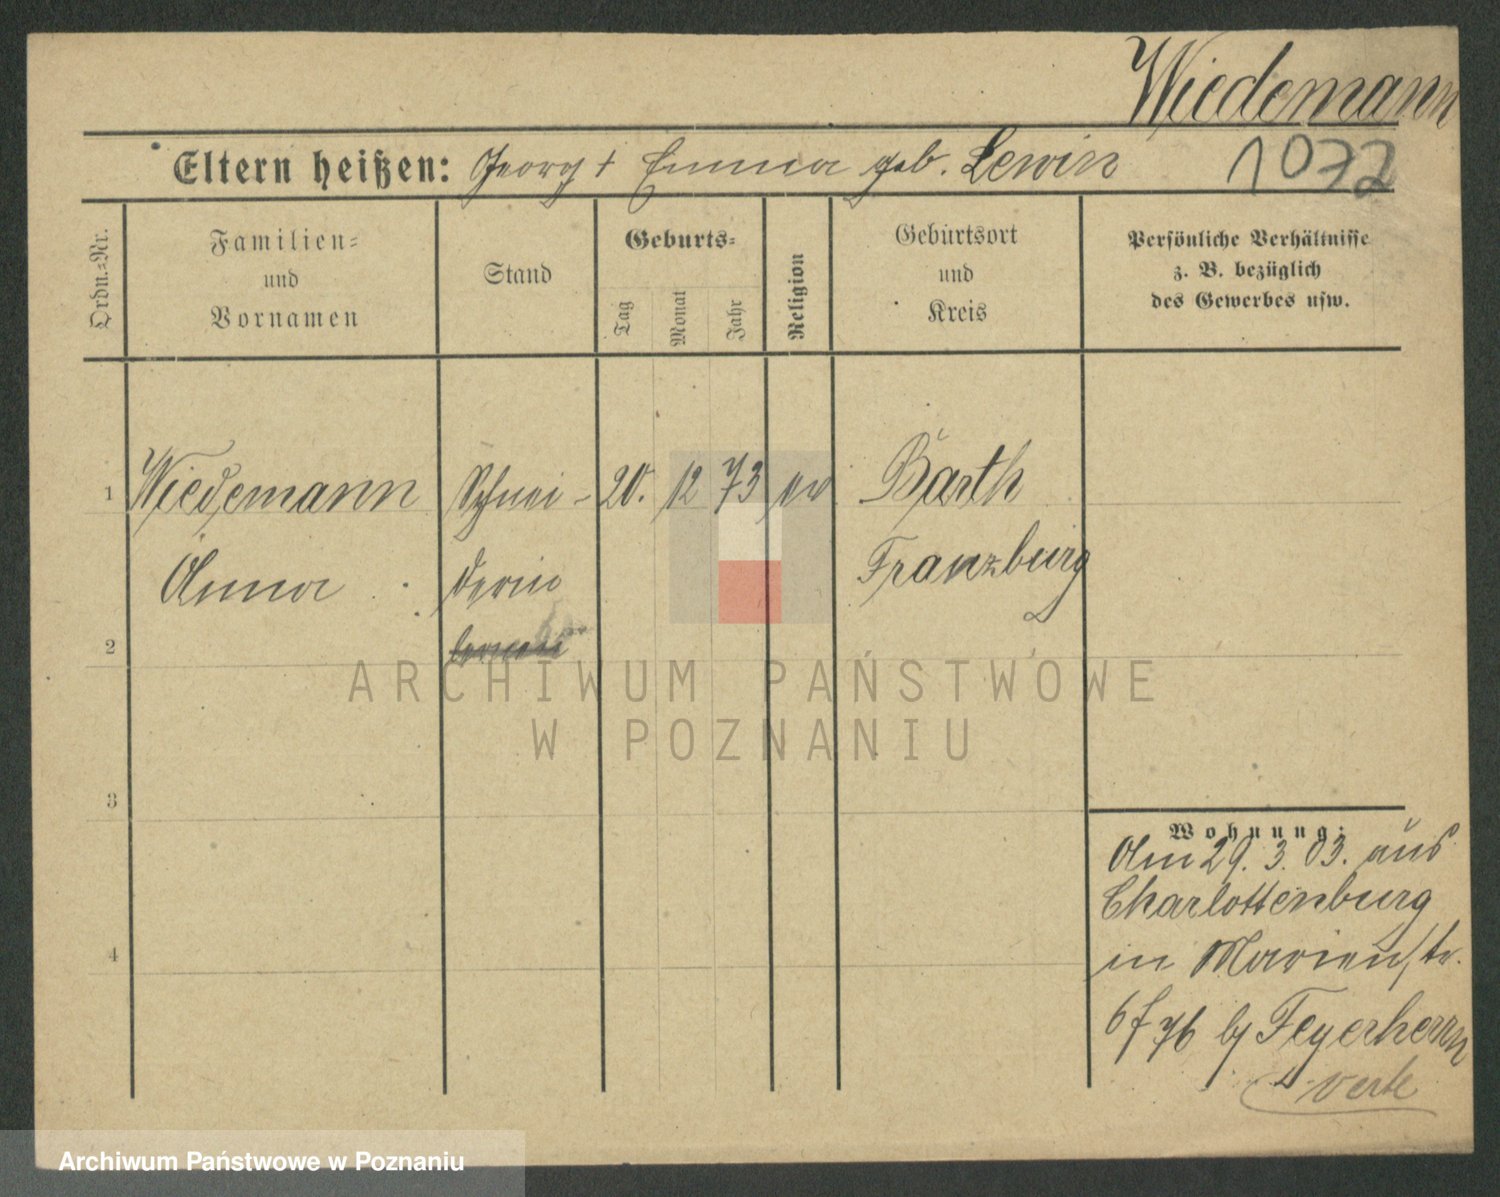 Wiedemann
Eltern heißen: Georg † Emma geb. Lewin
1072
Ordn.=Nr.
Familien=
und
Vornamen
Stand
Geburts=
Tag
Monat
Jahr
Religion
Geburtsort
und
Kreis
Persönliche Verhältnisse
z. B. bezüglich
des Gewerbes usw.
1 Wiedemann Schnei- 20. 12 73 ev Barth
Anna derin Franzburg
2
3
4
Wohnung:
Am 29. 3. 03. aus
Charlottenburg
in Marienstr.
6 f 76 by Feyerherrn
verte
ARCHIWUM PAŃSTWOWE
W POZNANIU
Archiwum Państwowe w Poznaniu